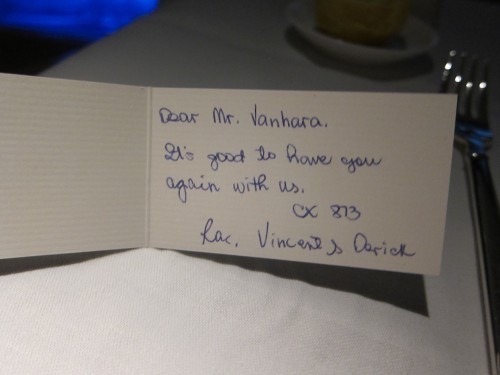 Dear Mr. Vanhara.
It's good to have you
again with us.
CX 873
Rac, Vincent & Derick